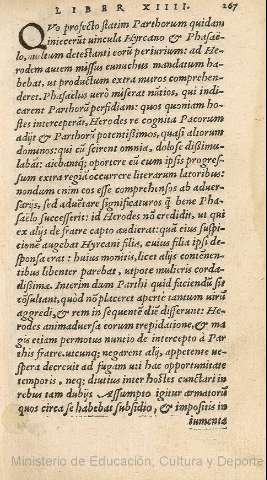 LIBER XIIII. 267
QVo profecto statim Parthorum quidam
iniecerūt vincula Hyrcano & Phasaë-
lo, multum detestanti eorū periurium: ad He-
rodem autem missus eunuchus mandatum ha-
bebat, ut productum extra muros comprehen-
deret. Phasaelus verò miserat nūtios, qui indi-
carent Parthorū perfidiam: quos quoniam ho-
stes interceperāt, Herodes re cognita Pacorum
adijt & Parthorū potentissimos, quasi aliorum
dominos: qui cū scirent omnia, dolosè dissimu-
labāt: aiebantq́; oportere eū cum ipsis progres-
sum extra regiā occurrere literarum latoribus:
nondum enim eos esse comprehensos ab aduer-
sarijs, sed aduētare significaturos q̄ bene Pha-
saëlo successerit: id Herodes nō credidit, ut qui
ex alijs de fratre capto audierat: quā eius suspi-
cionē augebat Hyrcani filia, cuius filia ipsi de-
sponsa erat: huius monitis, licet alijs contenen-
tibus libenter parebat, utpote mulieris corda-
tissimæ. Interim dum Parthi quid faciendū sit
cōsultant, quòd nō placeret aperte tantum uirū
aggredi, & rem in sequentē diē differunt: He-
rodes animaduersa eorum trepidatione, & ma-
gis etiam permotus nuntio de intercepto à Par
this fratre. utcunq; negarent alij, appetente ue-
spera decreuit ad fugam uti hac opportunitate
temporis, neq; diutius inter hostes cunctari in
rebus tam dubijs. Assumpto igitur armatorū
quos circa se habebat subsidio, & impositis in
iumenta
Ministerio de Educación, Cultura y Deporte